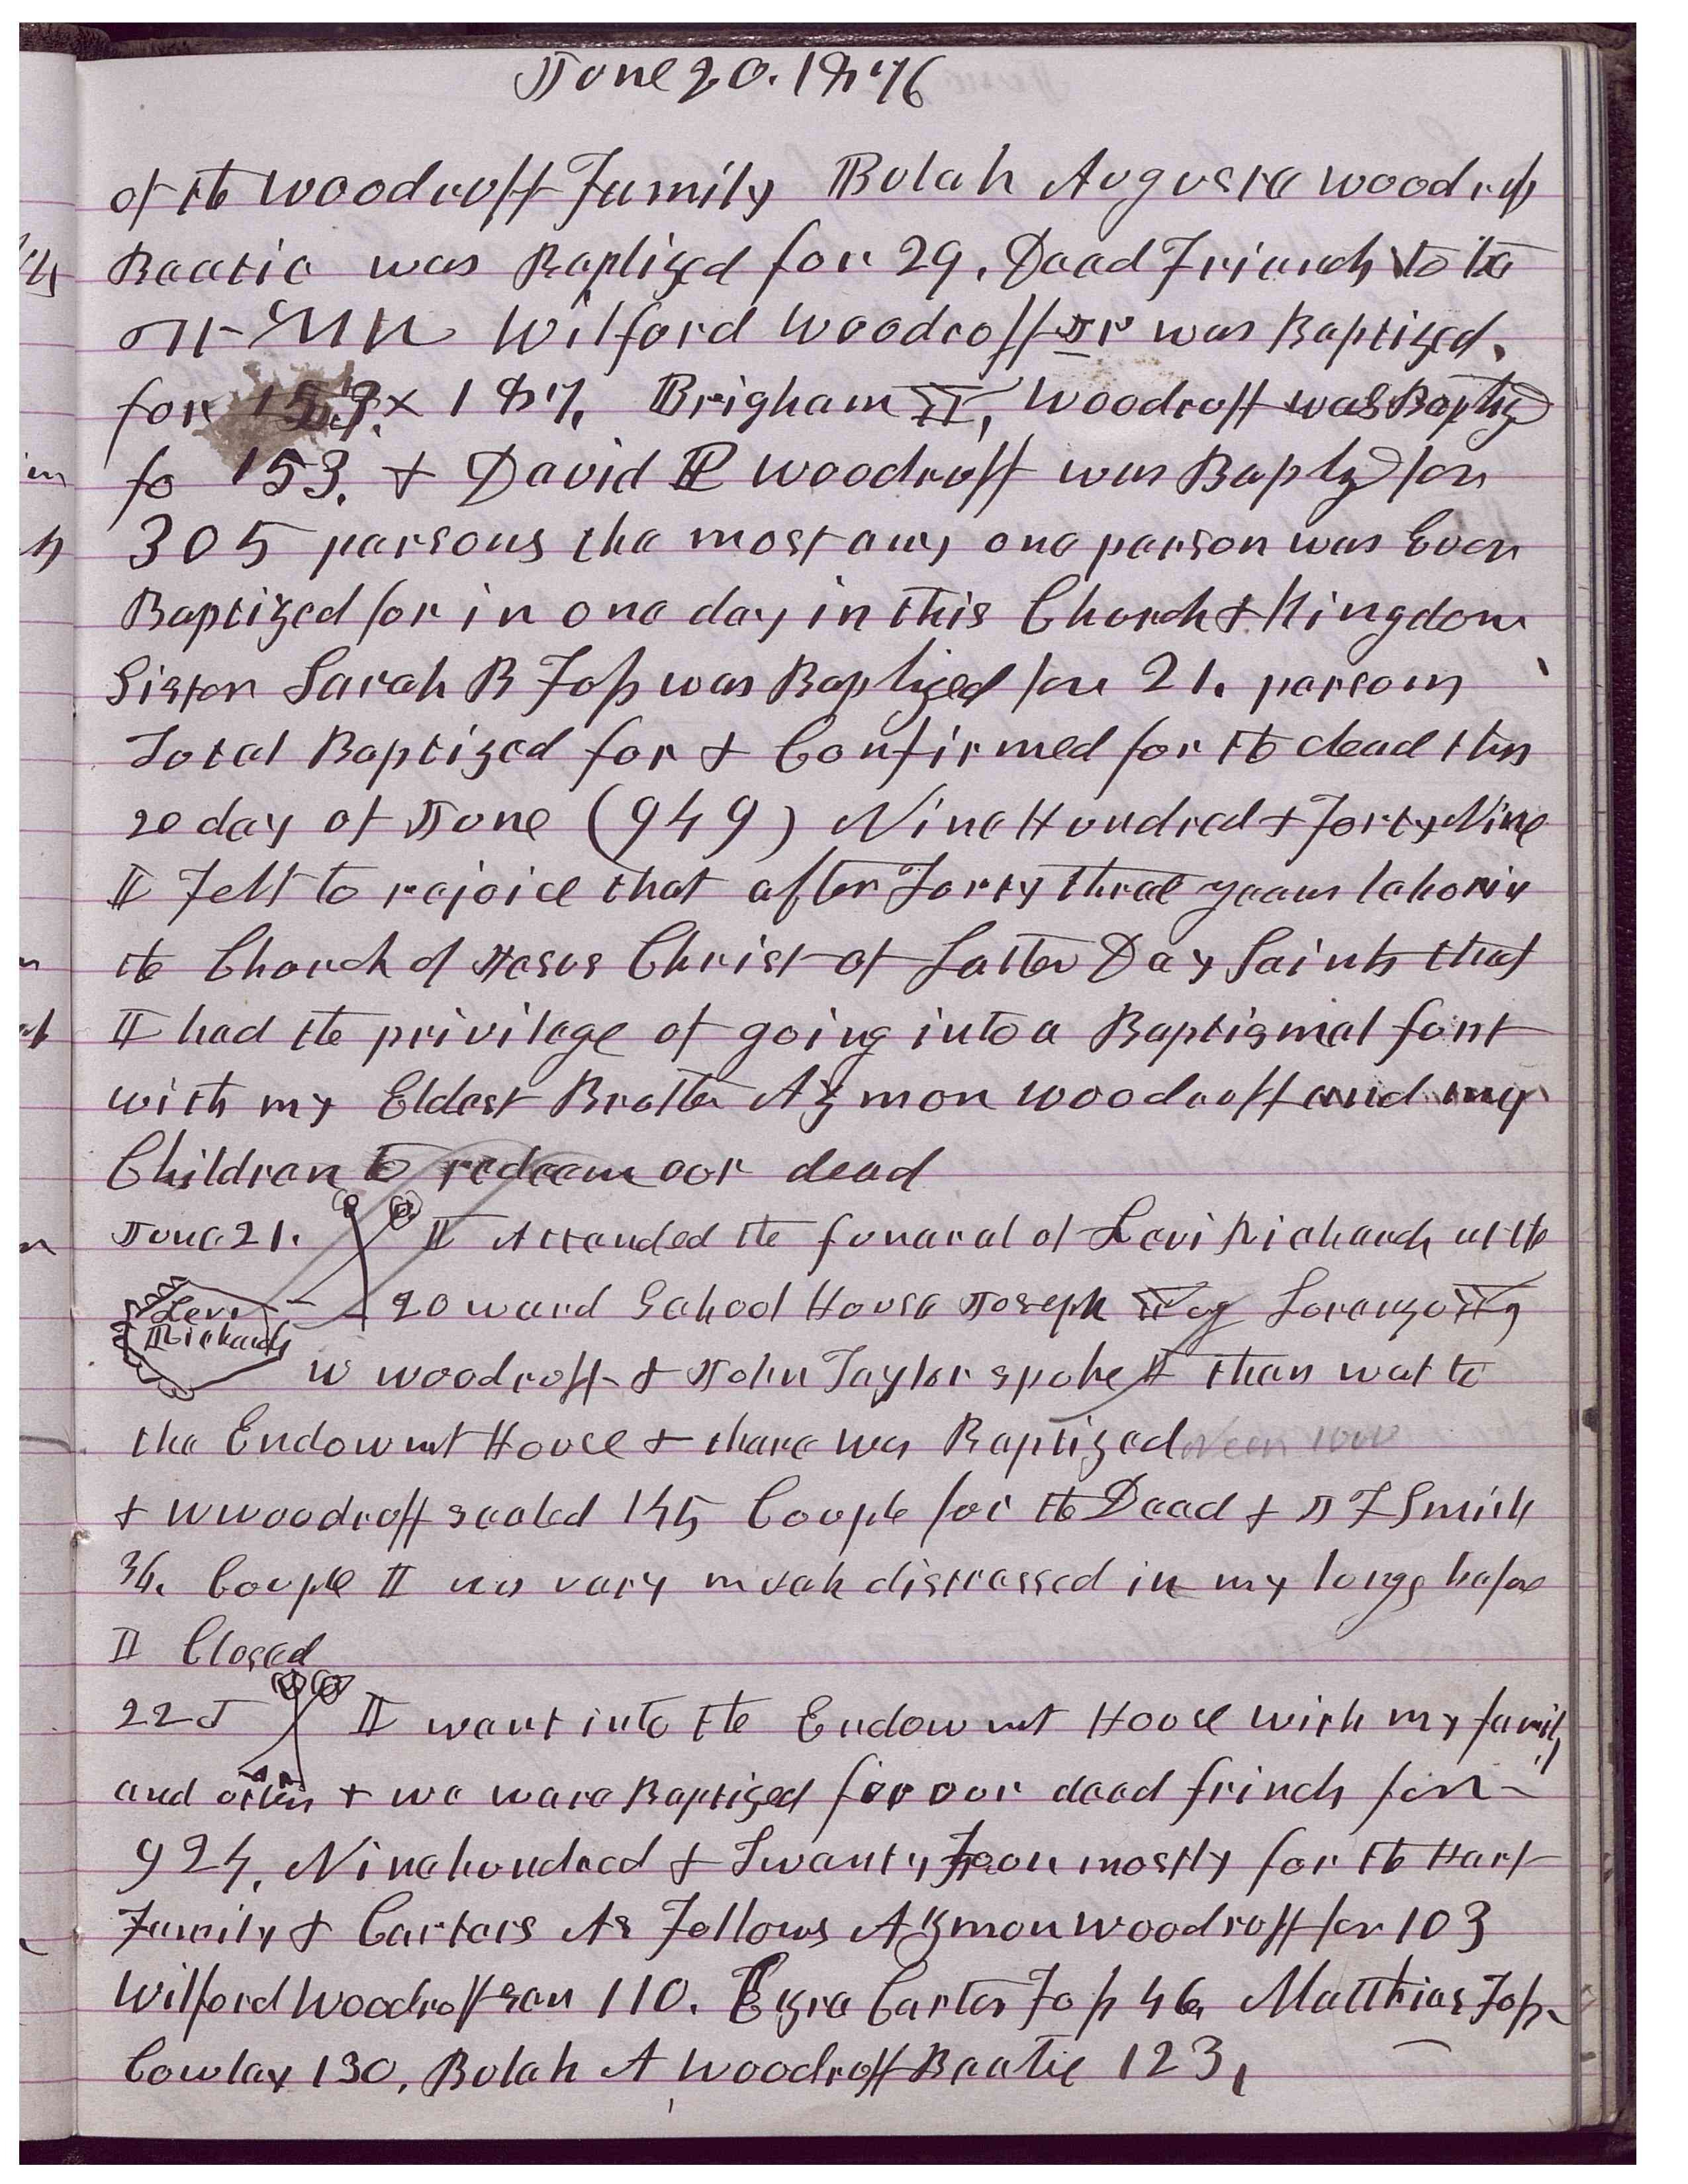 June 20. 1876
of the Woodruff Family Bulah Augusta Woodruff
Beatie was Baptized for 29. Dead Friends to the
Wilford Woodruff Jr was Baptized.
for 153. × 187. Brigham Y, Woodruff was Baptized
fo 153. + David P Woodruff was Baptz for
305 persons the most any one person was Ever
Baptized for in one day in this Church & Kingdom
Sister Sarah B Foss was Baptized for 21. persons
Total Baptized for & Confirmed for the dead this
20 day of June (949) Nine Hundred & Forty Nine
I Felt to rejoice that after Forty three years labor in
the Church of Jesus Christ of Latter Day Saints that
I had the privilege of going into a Baptismal font
with my Eldest Brother Azmon Woodruff and my
Children to redeem our dead
June 21. I Attended the funeral of Levi Richards at the
Levi Richards
20 ward School House Joseph Yg Lorenzo Yg
W Woodruff & John Taylor spoke I then wet to
the Endowmet House & there was Baptized
& W Woodruff sealed 145 Couple for the Dead & J F Smith
36. Couple I was very much distressed in my lungs before
I Closed
22d I went into the Endowmet House with my family
and others & we ware Baptized for our dead frinds for
924, Nine hundred & Twenty Four mostly for the Hart
Family & Carters As Follows Azmon Woodruff for 103
Wilford Woodruff sen 110. Ezra Carter Foss 46, Matthias Foss
Cowley 130, Bulah A Woodruff Beatie 123,